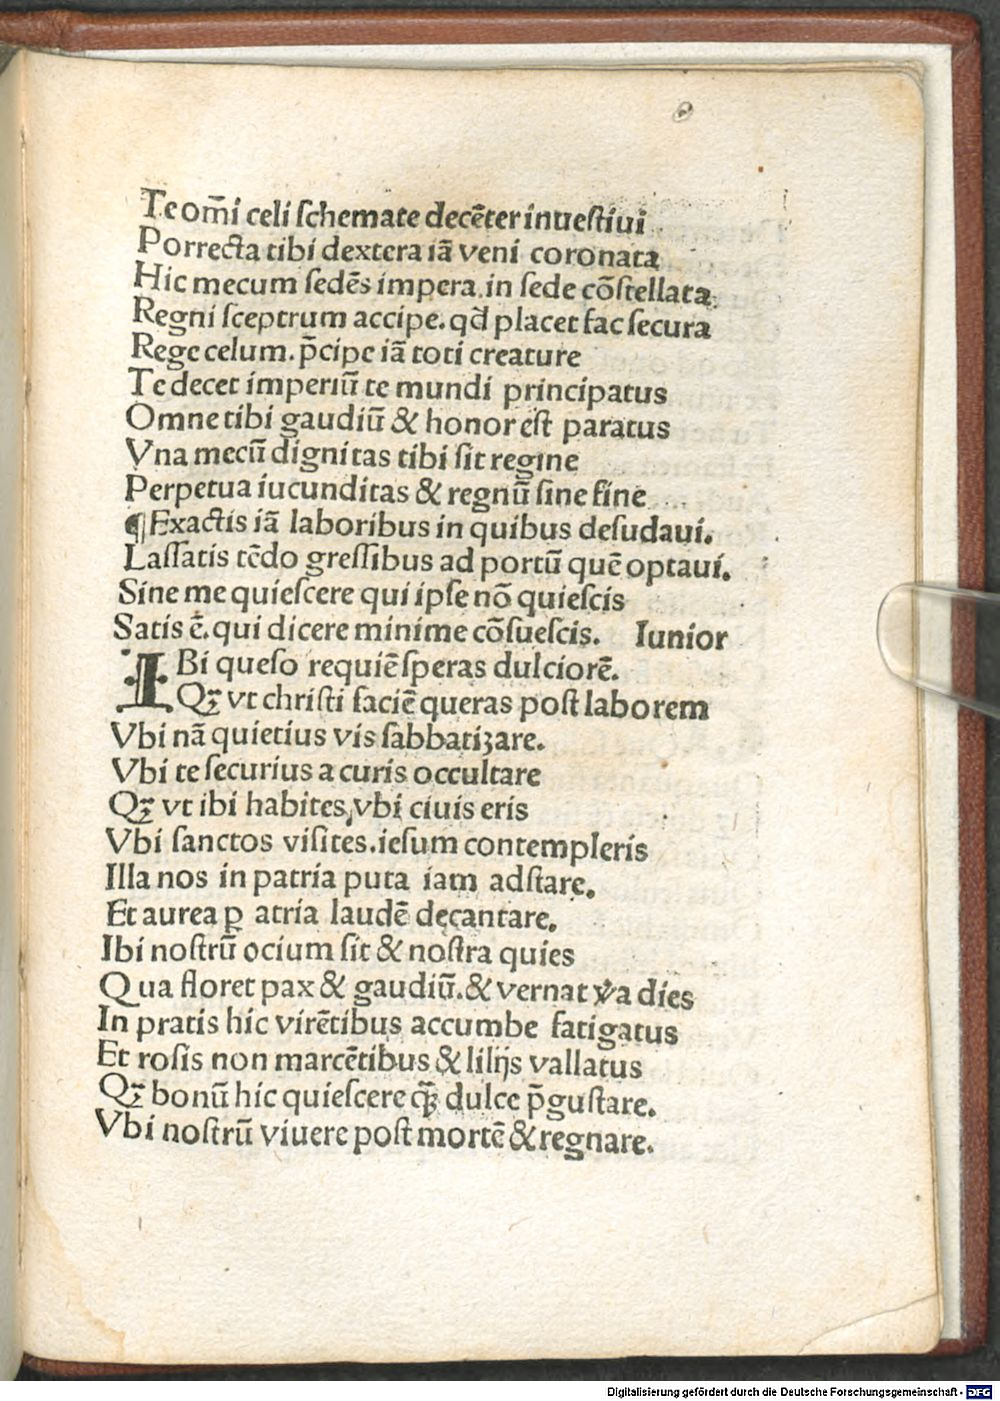 Te om̄i celi ſchemate decēter inueſtiui
Porrecta tibi dextera iā veni coronata
Hic mecum ſedēs impera in ſede cōſtellata
Regni ſceptrum accipe. qd̄ placet fac ſecura
Rege celum. p̄cipe iā toti creature
Te decet imperiū te mundi principatus
Omne tibi gaudiū & honor eſt paratus
Vna mecū dignitas tibi ſit regine
Perpetua iucunditas & regnū ſine fine
¶ Exactis iā laboribus in quibus deſudaui.
Laſſatis tēdo greſſibus ad portū quē optaui.
Sine me quieſcere qui ipſe nō quieſcis
Satis ē. qui dicere minime cōſueſcis. Iunior
IBi queſo requiē ſperas dulciorē.
Qꝫ vt chriſti faciē queras poſt laborem
Vbi nā quietius vis ſabbatiʒare.
Vbi te ſecurius a curis occultare
Qꝫ vt ibi habites, vbi ciuis eris
Vbi ſanctos viſites. ieſum contempleris
Illa nos in patria puta iam adſtare.
Et aurea ꝑ atria laudē decantare.
Ibi noſtrū ocium ſit & noſtra quies
Qua floret pax & gaudiū. & vernat v̄a dies
In pratis hic virētibus accumbe fatigatus
Et roſis non marcētibus & lilijs vallatus
Qꝫ bonū hic quieſcere qꝫ̄ dulce p̄guſtare.
Vbi noſtrū viuere poſt mortē & regnare.
Digitalisierung gefördert durch die Deutsche Forschungsgemeinschaft - DFG